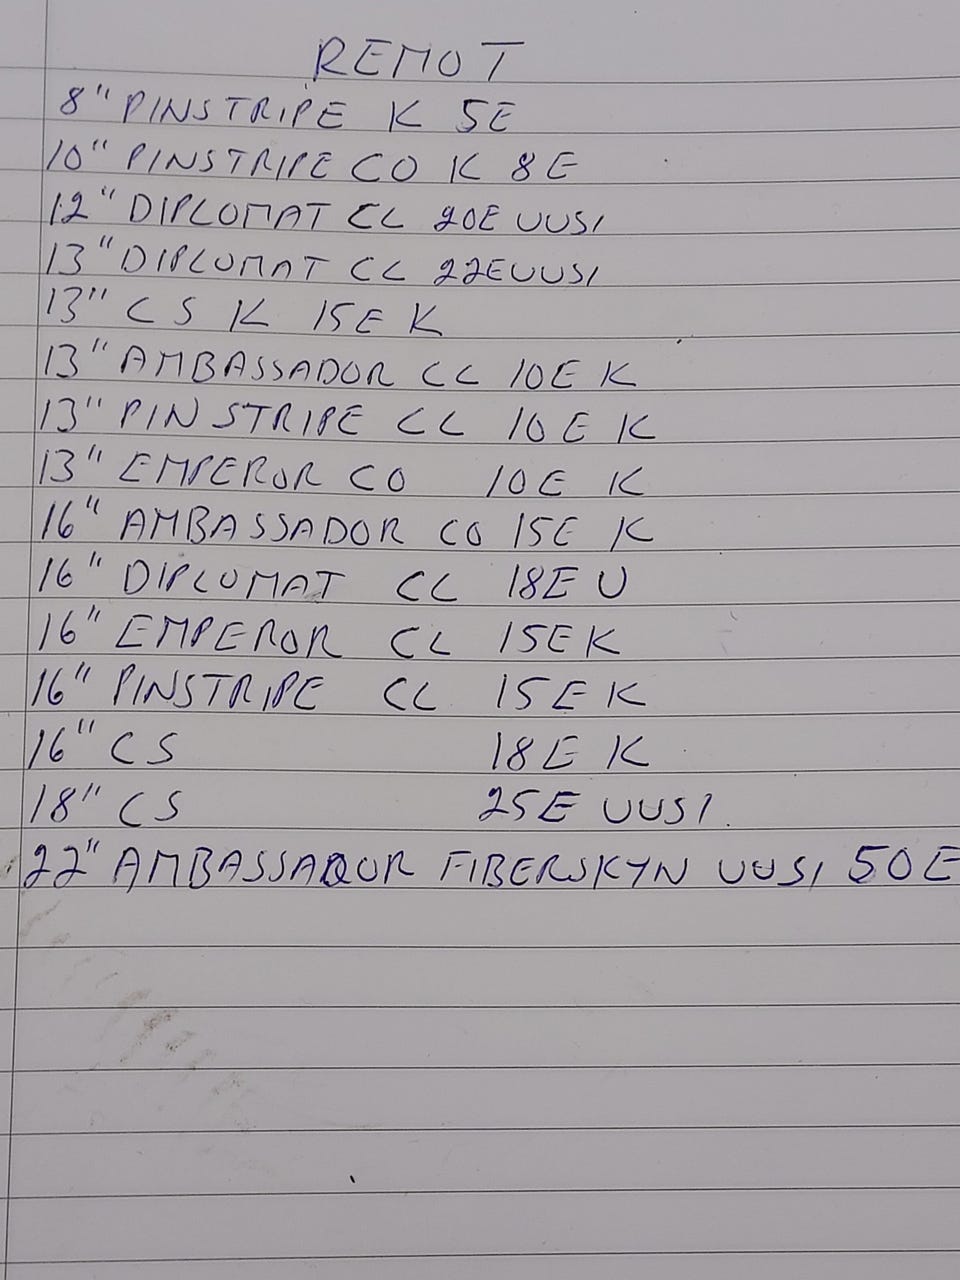 REMOT
8" PINSTRIPE K 5E
10" PINSTRIPE CO K 8E
12" DIPLOMAT CL 20E UUSI
13" DIPLOMAT CL 22E UUSI
13" CS K 15E K
13" AMBASSADOR CL 10E K
13" PINSTRIPE CL 10E K
13" EMPEROR CO 10E K
16" AMBASSADOR CO 15E K
16" DIPLOMAT CL 18E U
16" EMPEROR CL 15E K
16" PINSTRIPE CL 15E K
16" CS 18E K
18" CS 25E UUSI.
22" AMBASSADOR FIBERSKYN UUSI 50E